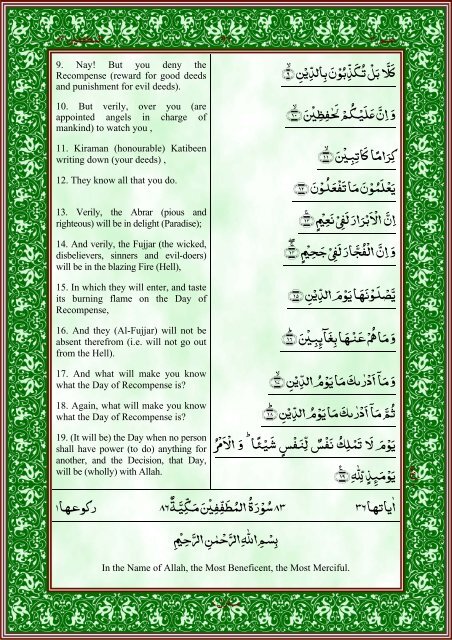 9. Nay! But you deny the
Recompense (reward for good deeds
and punishment for evil deeds).
كَلَّا بَلْ تُكَذِّبُوْنَ بِالدِّيْنِ ۙ﴿۹﴾
10. But verily, over you (are
appointed angels in charge of
mankind) to watch you ,
وَ اِنَّ عَلَيْكُمْ لَحٰفِظِيْنَ ۙ﴿۱۰﴾
11. Kiraman (honourable) Katibeen
writing down (your deeds) ,
كِرَامًا كَاتِبِيْنَ ۙ﴿۱۱﴾
12. They know all that you do.
يَعْلَمُوْنَ مَا تَفْعَلُوْنَ ﴿۱۲﴾
13. Verily, the Abrar (pious and
righteous) will be in delight (Paradise);
اِنَّ الْاَبْرَارَ لَفِيْ نَعِيْمٍ ۚ﴿۱۳﴾
14. And verily, the Fujjar (the wicked,
disbelievers, sinners and evil-doers)
will be in the blazing Fire (Hell),
وَ اِنَّ الْفُجَّارَ لَفِيْ جَحِيْمٍ ﴿۱۴﴾
15. In which they will enter, and taste
its burning flame on the Day of
Recompense,
يَّصْلَوْنَهَا يَوْمَ الدِّيْنِ ﴿۱۵﴾
16. And they (Al-Fujjar) will not be
absent therefrom (i.e. will not go out
from the Hell).
وَ مَا هُمْ عَنْهَا بِغَآىِٕبِيْنَ ؕ﴿۱۶﴾
17. And what will make you know
what the Day of Recompense is?
وَ مَاۤ اَدْرٰىكَ مَا يَوْمُ الدِّيْنِ ۙ﴿۱۷﴾
18. Again, what will make you know
what the Day of Recompense is?
ثُمَّ مَاۤ اَدْرٰىكَ مَا يَوْمُ الدِّيْنِ ؕ﴿۱۸﴾
19. (It will be) the Day when no person
shall have power (to do) anything for
another, and the Decision, that Day,
will be (wholly) with Allah.
يَوْمَ لَا تَمْلِكُ نَفْسٌ لِّنَفْسٍ شَيْـًٔا ؕ وَ الْاَمْرُ
يَوْمَىِٕذٍ لِّلّٰهِ ﴿۱۹﴾
اٰياتها ۳۶ ۸۳ سُوْرَةُ الْمُطَفِّفِيْنَ مَكِّيَّةٌ ۸۶ ركوعها ۱
بِسْمِ اللّٰهِ الرَّحْمٰنِ الرَّحِيْمِ
In the Name of Allah, the Most Beneficent, the Most Merciful.